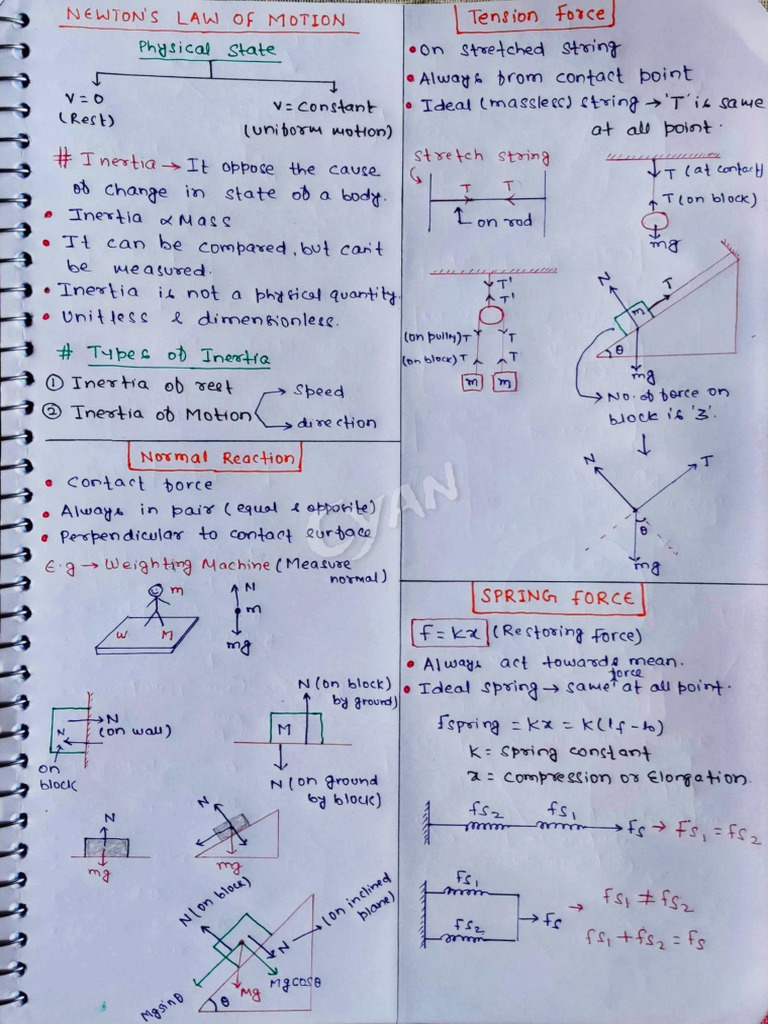 NEWTON'S LAW OF MOTION
Physical State
V=0
(Rest)
V= Constant
(uniform motion)
# Inertia → It oppose the cause
of change in state of a body.
• Inertia ∝ Mass
• It can be compared, but can't
be measured.
• Inertia is not a physical quantity.
• Unitless & dimensionless.
# Types of Inertia
① Inertia of rest
② Inertia of Motion
→ Speed
→ direction
Normal Reaction
• Contact force
• Always in pair (equal & opposite)
• Perpendicular to contact surface
E.g → Weighting Machine (Measure
normal)
m
W M
N
m
mg
N
(on wall)
N
on
block
N (on block)
by ground)
M
N (on ground
by block)
N
mg
N
mg
N (on block)
(on inclined
plane)
N
Mg sinθ
θ
Mg
Mg cosθ
Tension Force
• On stretched string
• Always from contact point
• Ideal (massless) string → 'T' is same
at all point.
Stretch string
T T
on rod
T (at contact)
T (on block)
mg
T'
T'
(on pully) T T
(on block) T T
m m
N
T
m
θ
mg
→ No. of force on
block is '3'.
N
T
θ
mg
SPRING FORCE
f = Kx (Restoring force)
• Always act towards mean.
• Ideal spring → same force at all point.
Fspring = Kx = K(lf - lo)
K = spring constant
x = compression or Elongation.
fS2 fS1
fs → FS1 = fS2
FS1
FS2
fs
→ fS1 ≠ fS2
fS1 + fS2 = fs
CYAN